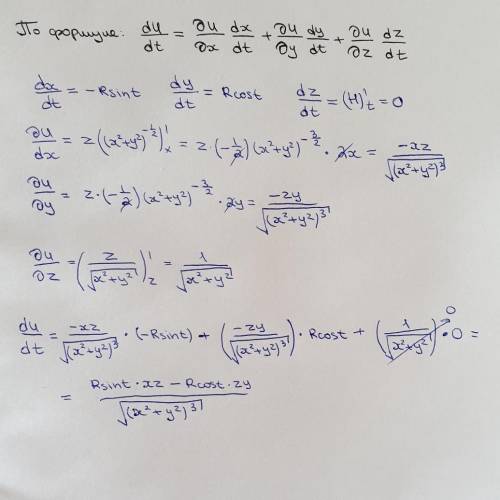 По формуле: du/dt = ∂u/∂x dx/dt + ∂u/∂y dy/dt + ∂u/∂z dz/dt
dx/dt = -Rsint dy/dt = Rcost dz/dt = (H)'ₜ = 0
∂u/dx = z((x²+y²)^(-1/2))'ₓ = z·(-1/2)(x²+y²)^(-3/2) · 2x = -xz/√((x²+y²)³)
∂u/∂y = z·(-1/2)(x²+y²)^(-3/2) · 2y = -zy/√((x²+y²)³)
∂u/∂z = (z/√(x²+y²))'_z = 1/√(x²+y²)
du/dt = -xz/√((x²+y²)³) · (-Rsint) + (-zy/√((x²+y²)³)) · Rcost + (1/√(x²+y²)) · 0 = 0
= (Rsint · xz - Rcost · zy)/√((x²+y²)³)